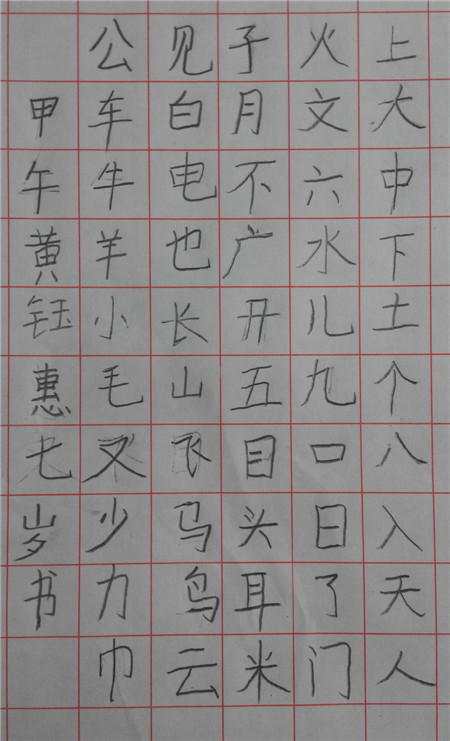 上大中下土个八入天人
火文六水儿九口日了门
子月不广开五目头耳米
见白电也长山飞马鸟云
公车牛羊小毛又少力巾
甲午黄钰惠七岁书